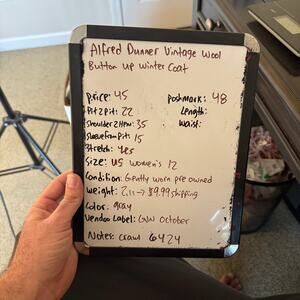 Alfred Dunner Vintage Wool
Button up winter Coat
Price: 45
Poshmark: 48
Pit2pit: 22
Length:
Shoulder2Hem: 35
Waist:
Sleeve from Pit: 15
Stretch: Yes
Size: US Women's 12
Condition: Gently worn pre owned
Weight: 2.11 → $9.99 shipping
Color: gray
Vendoo Label: GW October
Notes: Crawl 6424